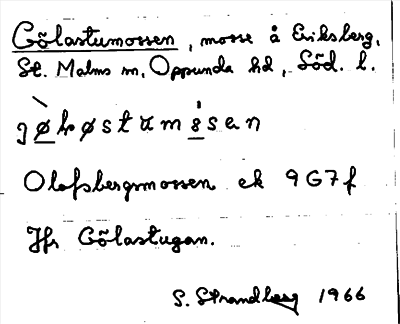 Gölastumossen, mosse å Eriksberg,
St. Malms sn, Oppunda hd, Söd. l.
Olofsbergsmossen ek 9G7f
Jfr Gölastugan.
S. Strandberg 1966